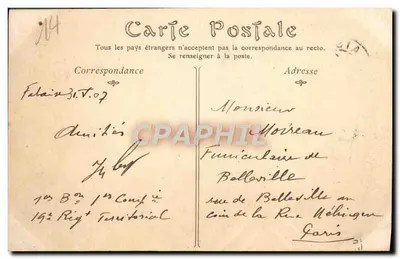 14
Carte Postale
Tous les pays étrangers n'acceptent pas la correspondance au recto.
Se renseigner à la poste.
Correspondance
Adresse
31.V.07
Amitiés
1er Bon 1re Compie
19e Rigt Territorial
Monsieur
Moireau
Funiculaire de
Belleville
rue de Belleville au
coin de la Rue
Paris
CPAPHIL.COM